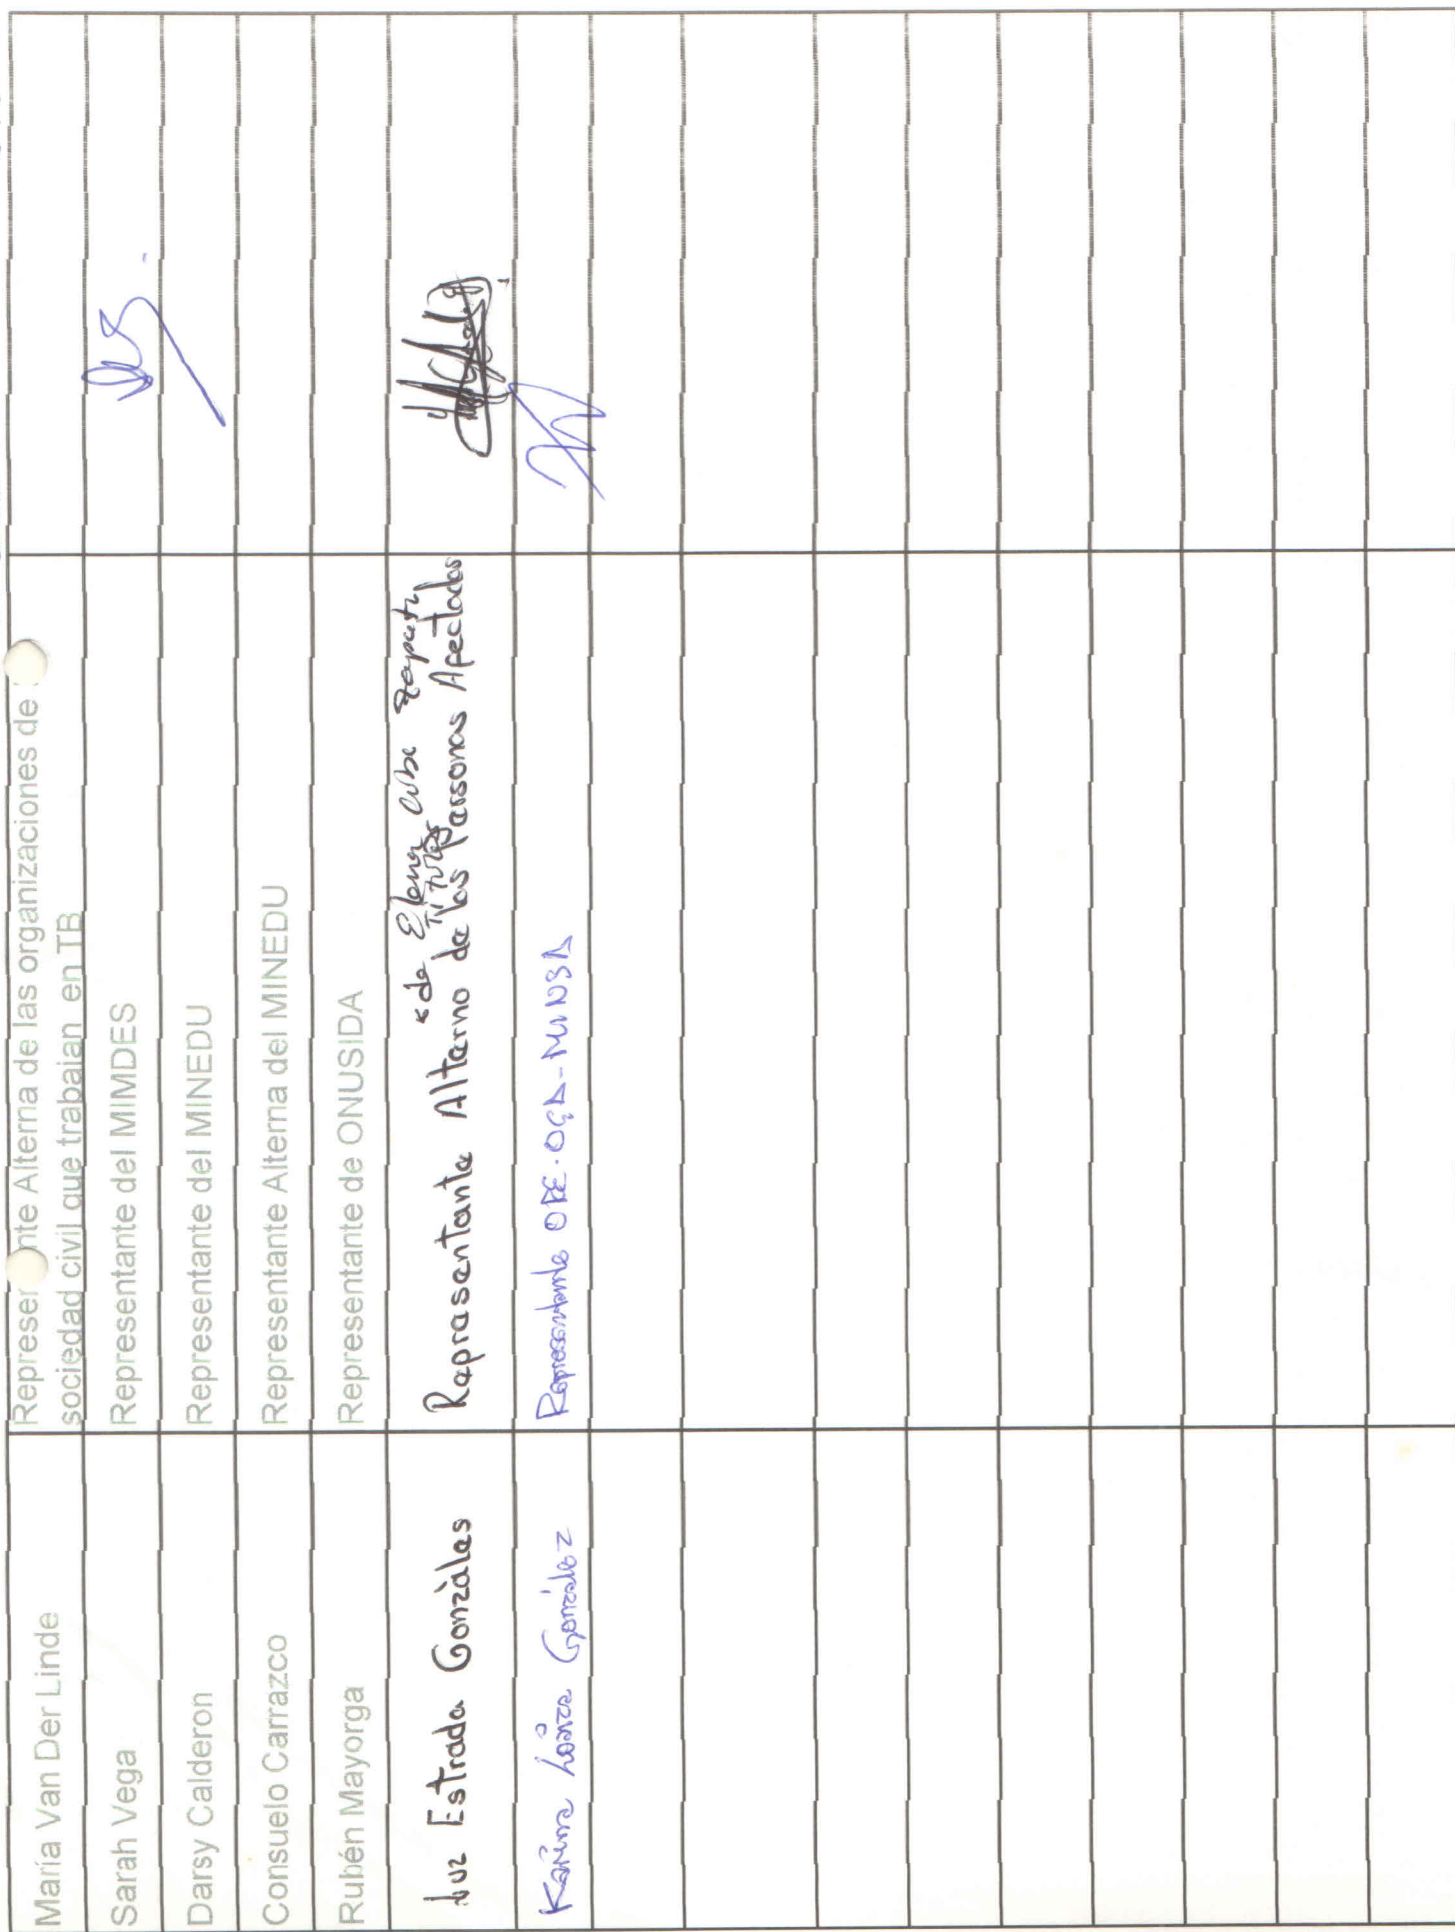 María Van Der Linde
Represer nte Alterna de las organizaciones de
sociedad civil que trabajan en TB
Sarah Vega
Representante del MIMDES
Darsy Calderon
Representante del MINEDU
Consuelo Carrazco
Representante Alterna del MINEDU
Rubén Mayorga
Representante de ONUSIDA
Luz Estrada Gonzàles
de Elena
Representante Alterno de las Personas Afectadas
González
Representante